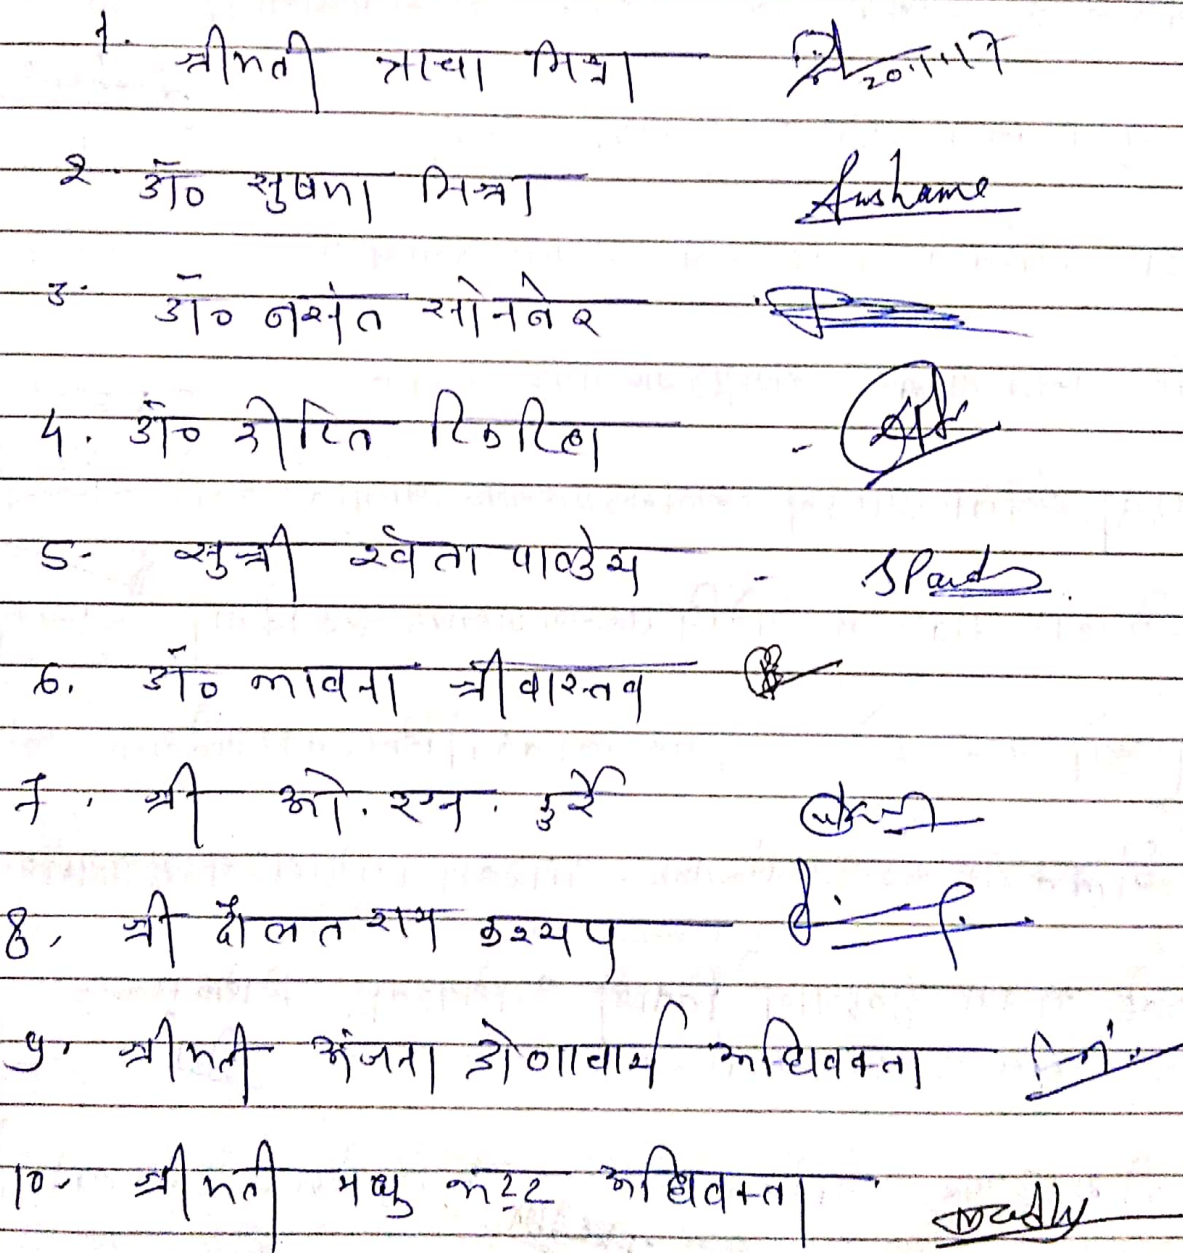 1. श्रीमती त्राचा मिश्रा 20.1.17
2. डॉ० सुषमा मिश्रा Sushame
3. डॉ० बसंत सोनबेर
4. डॉ० रीटित टिकरिहा
5. सुश्री श्वेता पाण्डेय - SPand
6. डॉ० भावना श्रीवास्तव
7. श्री ओ. एन. दुर्रे
8. श्री दौलत राम कश्यप
9. श्रीमती अंजना द्रोणाचार्य अधिवक्ता
10. श्रीमती मधु भट्ट अधिवक्ता